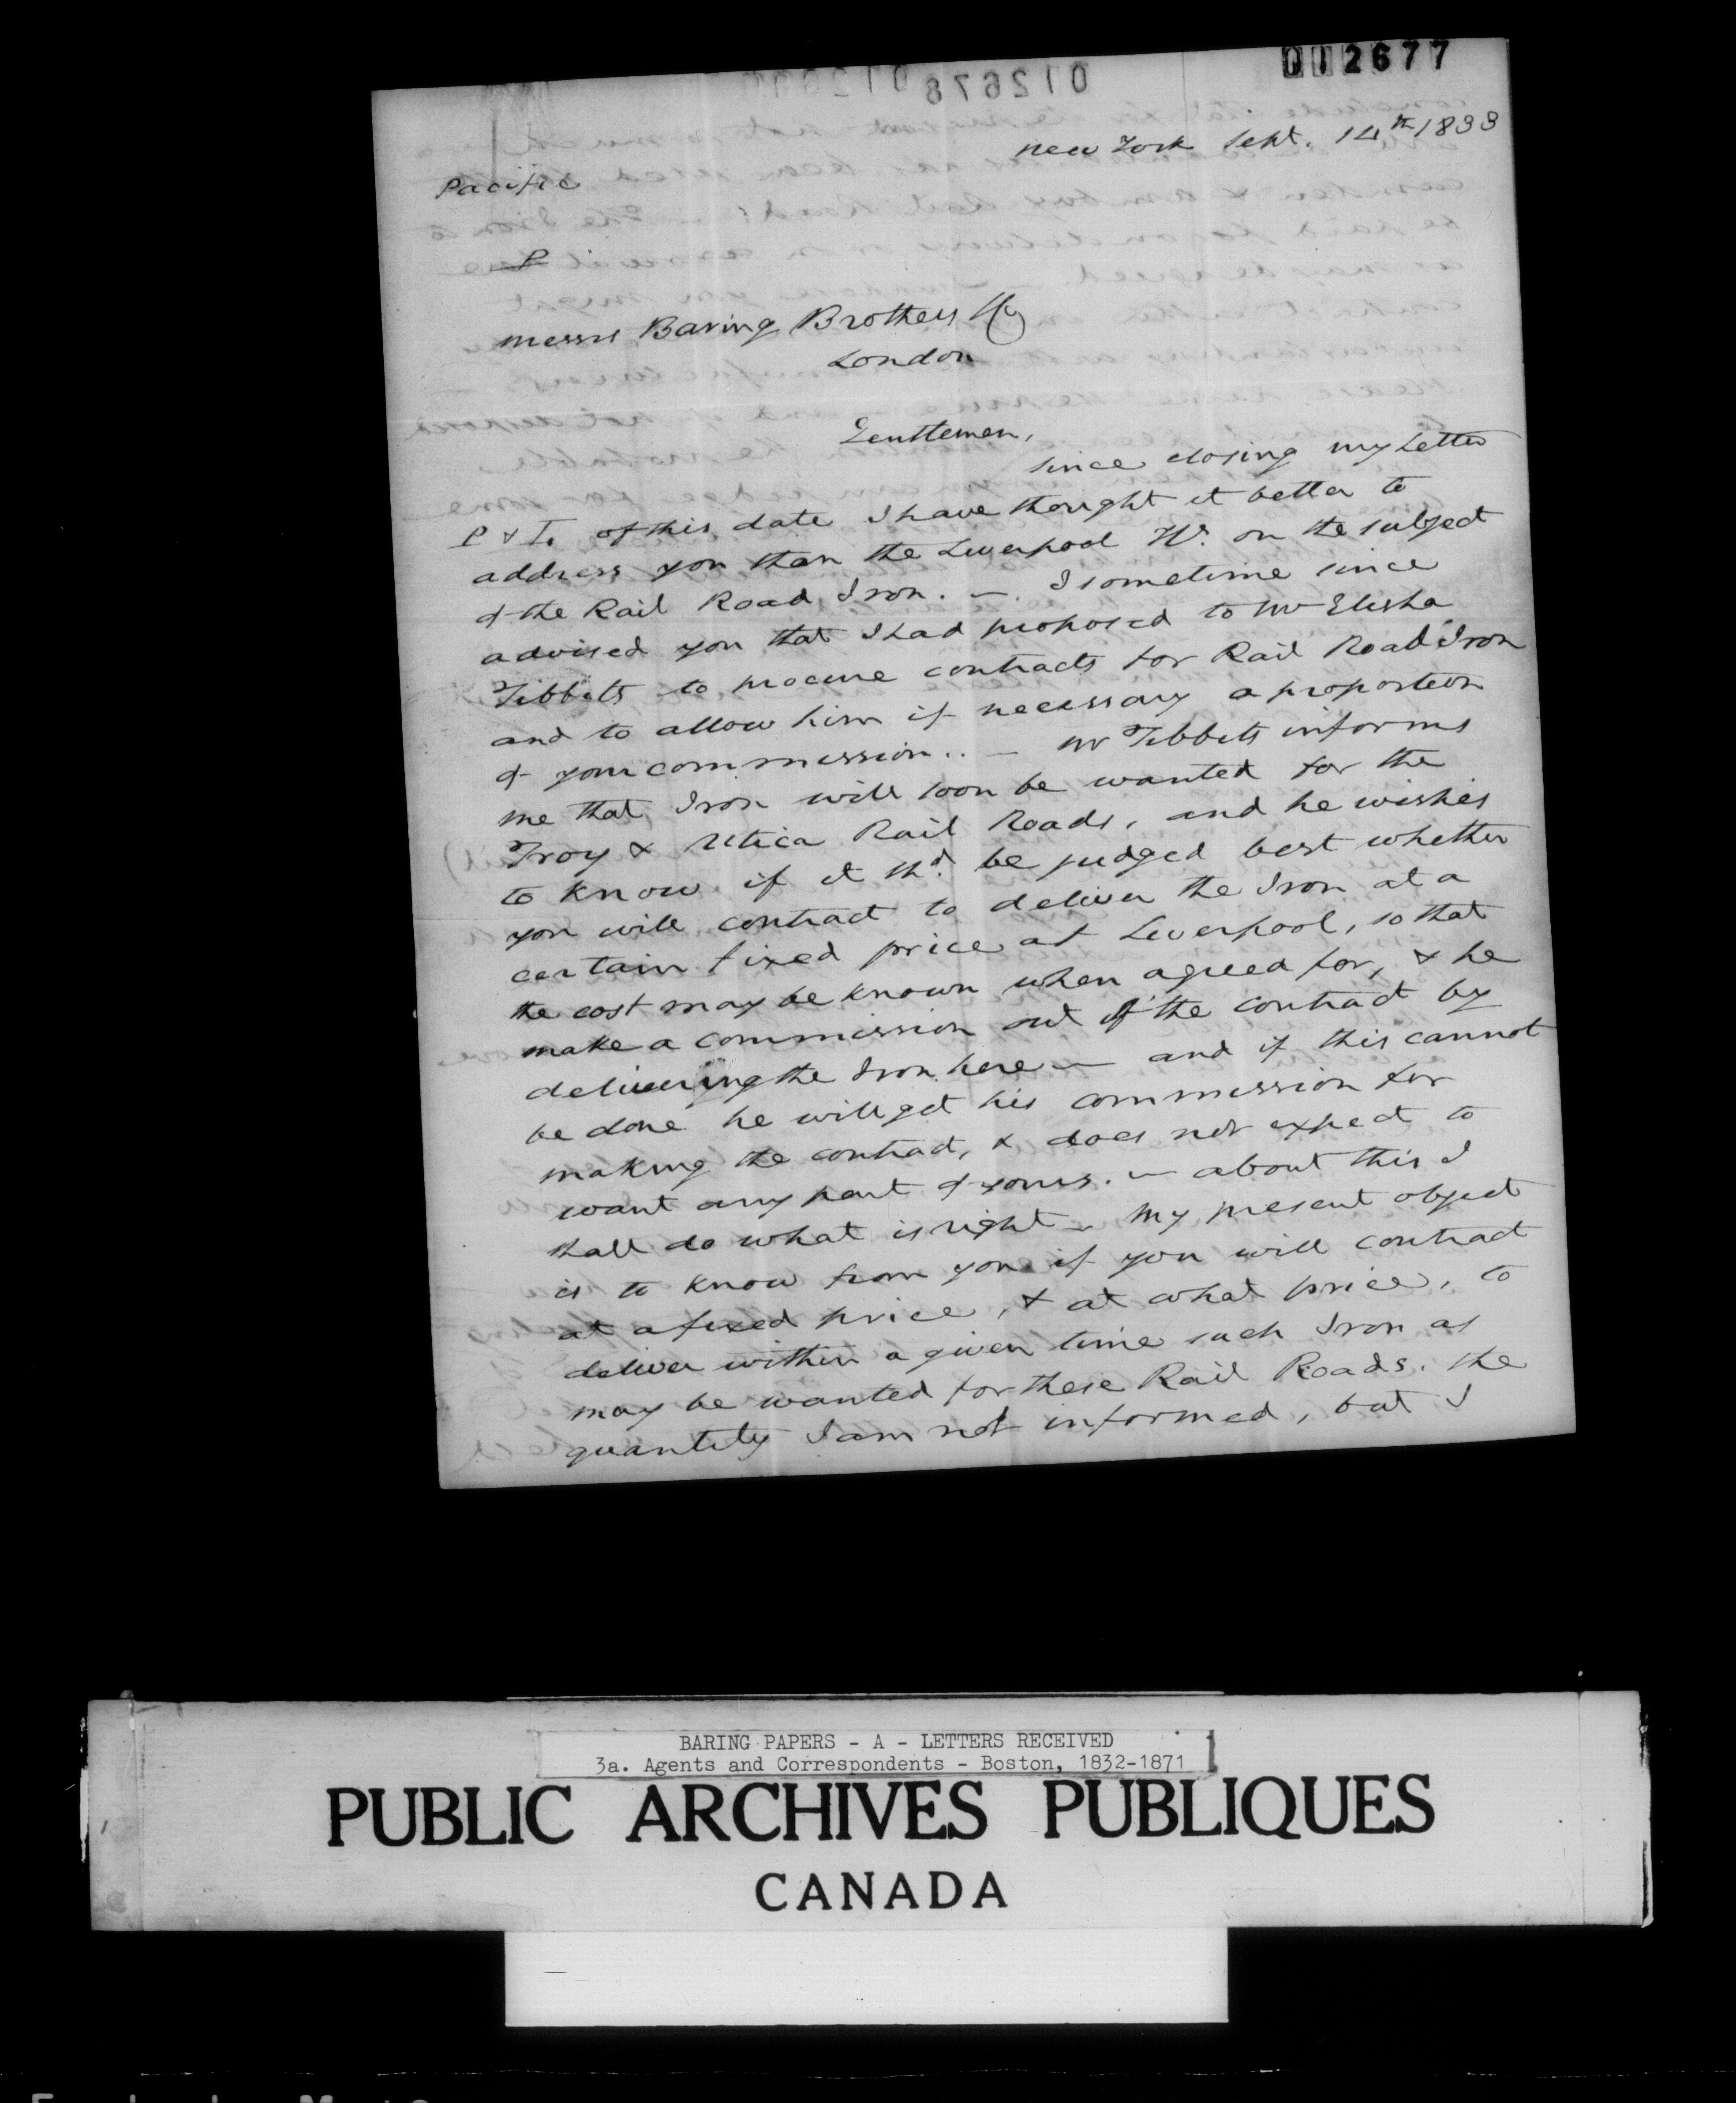 012677
012678
New York Sept. 14th 1833
Pacific
P
Messrs Baring Brothers & Co
London
Gentlemen,
since closing my Letter
P & T. of this date I have thought it better to
address you than the Liverpool Hs. on the subject
of the Rail Road Iron. — I sometime since
advised you that I had proposed to Mr Elisha
Tibbets to procure contracts for Rail Road Iron
and to allow him if necessary a proportion
of your commission.. — Mr Tibbets informs
me that Iron will soon be wanted for the
Troy & Utica Rail Roads, and he wishes
to know if it shd. be judged best whether
you will contract to deliver the Iron at a
certain fixed price at Liverpool, so that
the cost may be known when agreed for, & he
make a commission out of the contract by
delivering the Iron here — and if this cannot
be done he will get his commission for
making the contract, & does not expect to
want any part of yours. — about this I
shall do what is right — My present object
is to know from you if you will contract
at a fixed price, & at what price, to
deliver within a given time such Iron as
may be wanted for these Rail Roads. the
quantity I am not informed, but I
BARING PAPERS - A - LETTERS RECEIVED
3a. Agents and Correspondents - Boston, 1832-1871
PUBLIC ARCHIVES PUBLIQUES
CANADA